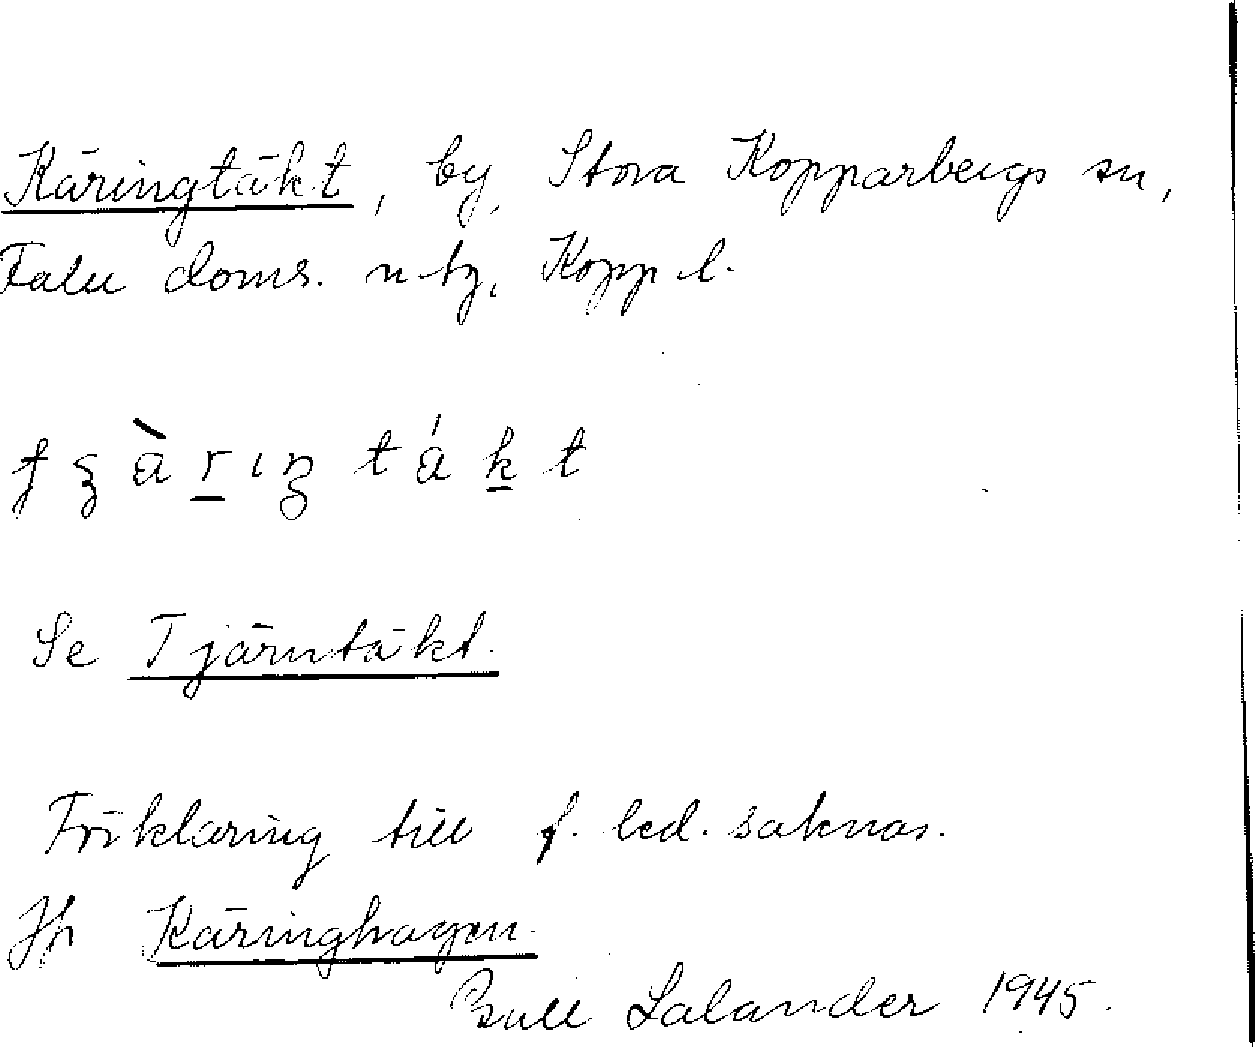 Käringtäkt, by, Stora Kopparbergs sn,
Falu doms. n tg, Kopp l.
Se Tjärntäkt.
Förklaring till f. led. saknas.
Jfr Käringhagen.
Lalander 1945.